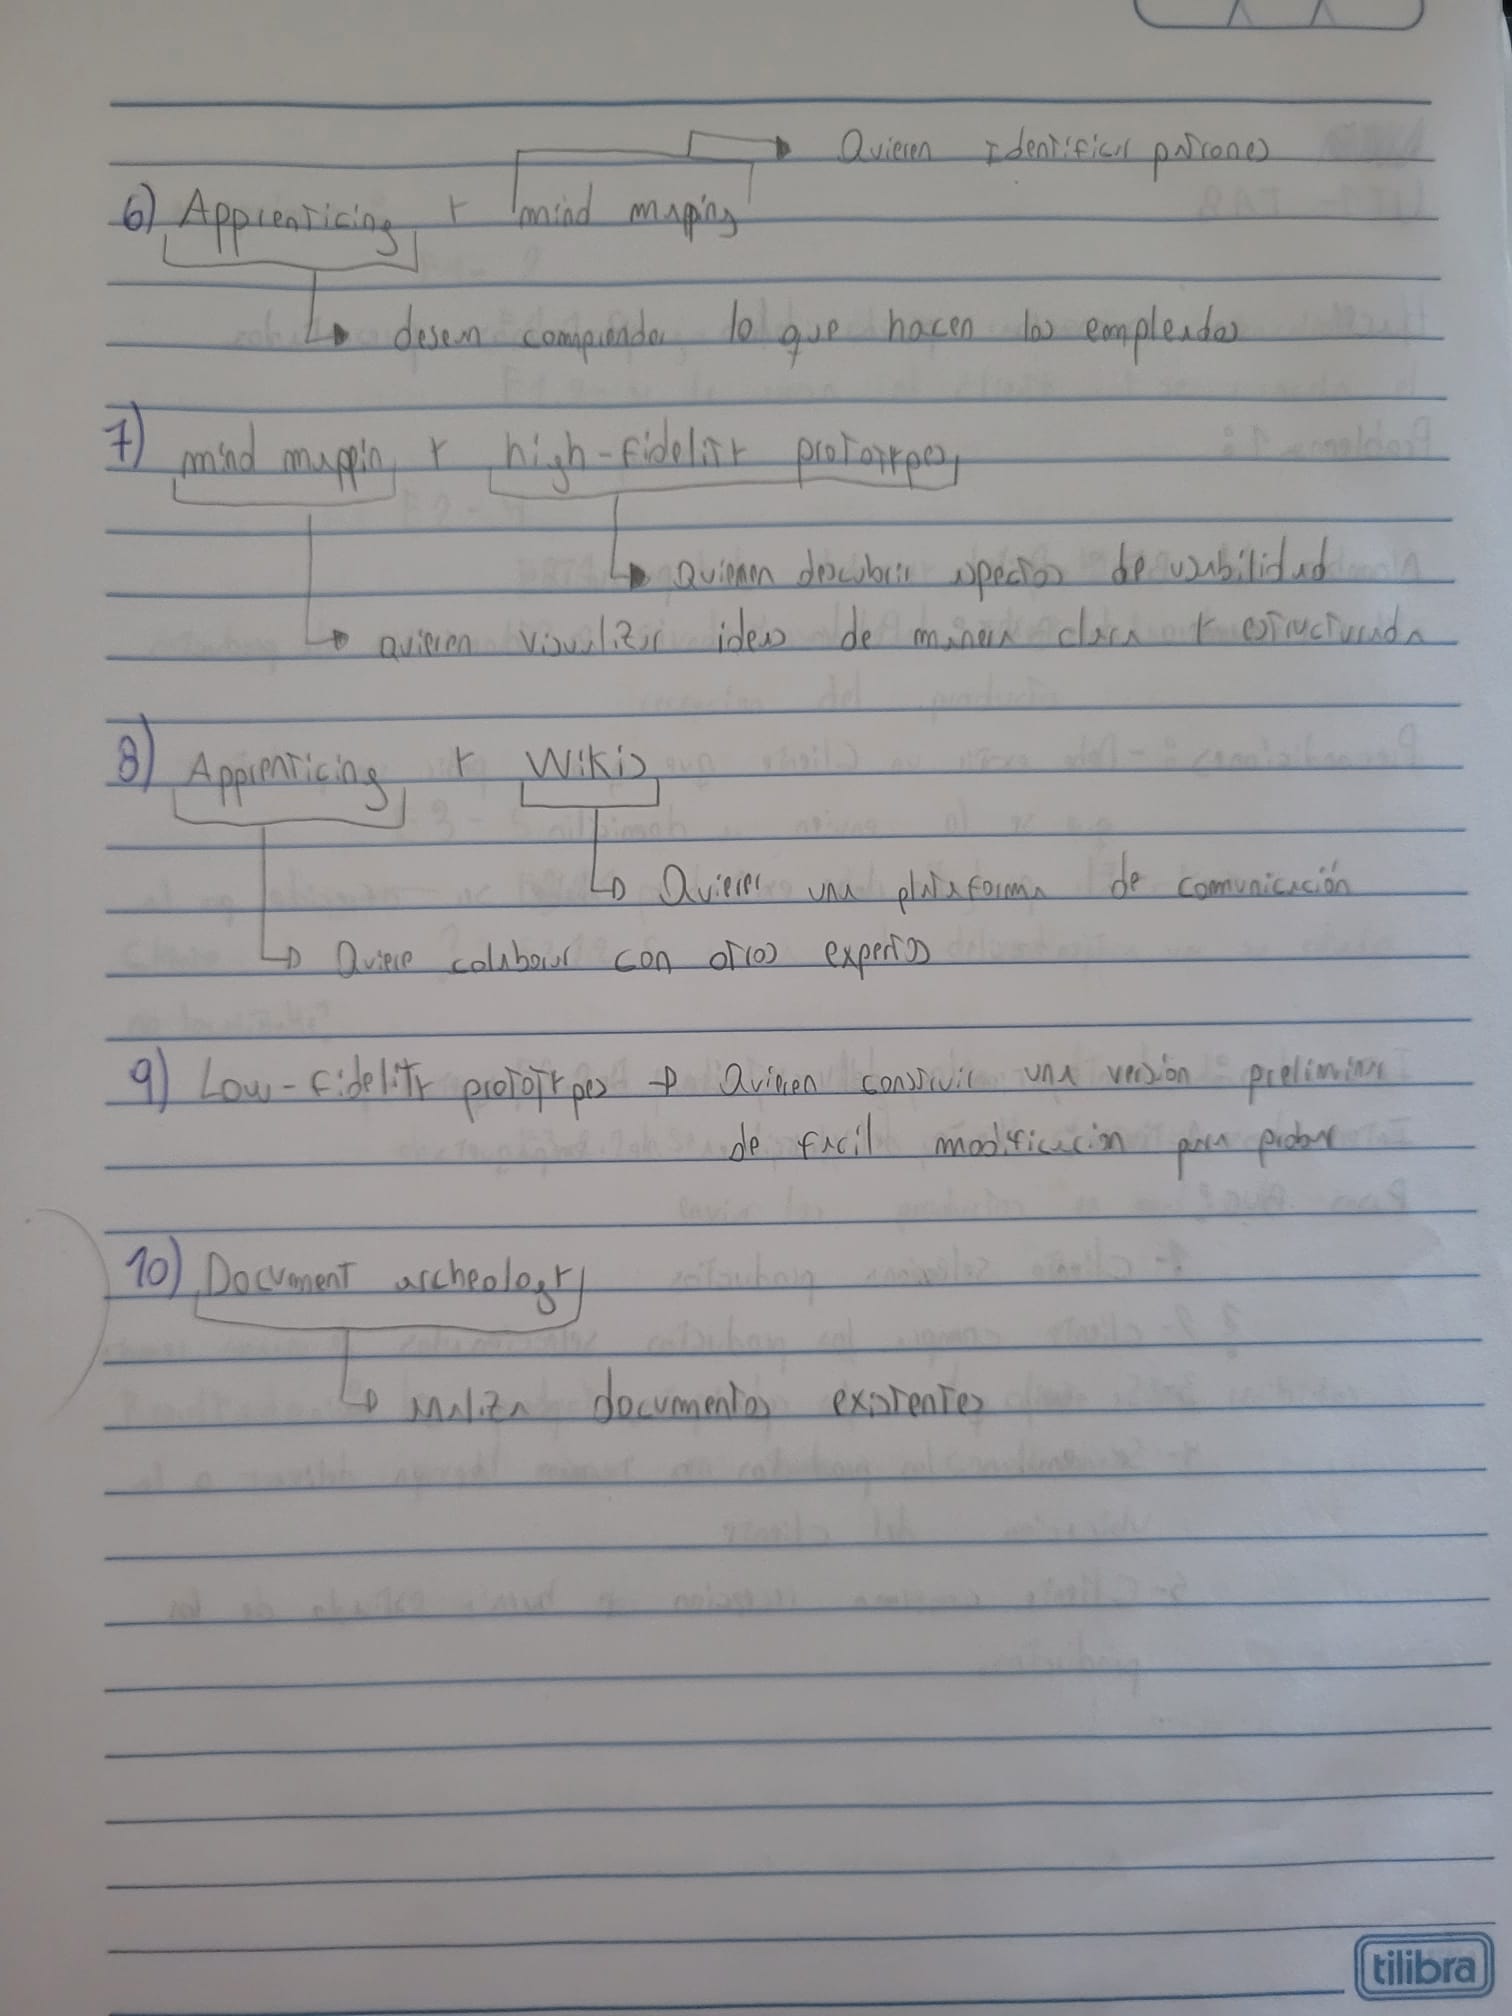 Quieren Identificar patrones
6) Apprenticing + mind mapping
desean comprender lo que hacen los empleados
7) mind mappin + high-fidelity prototypes
Quieren descubrir aspectos de usabilidad
quieren visualizar ideas de manera clara y estructurada
8) Apprenticing + Wikis
Quieren una plataforma de comunicación
Quiere colaborar con otros expertos
9) Low-fidelity prototypes → Quieren construir una versión preliminar
de facil modificación para probar
10) Document archeology
analiza documentos existentes
tilibra